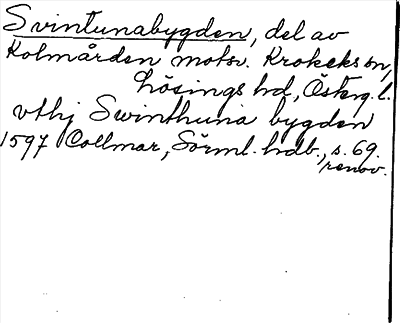 Svintunabygden, del av
Kolmården motsv. Krokeks sn,
Lösings hd, Österg. l.
vthj Swinthuna bygden
1597 Collmar, Sörml. hdb., s. 69.
renov.